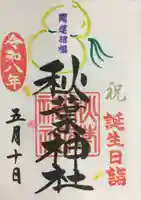 祝
誕生日詣
開運招福
秋葉神社
令和八年
五月十日